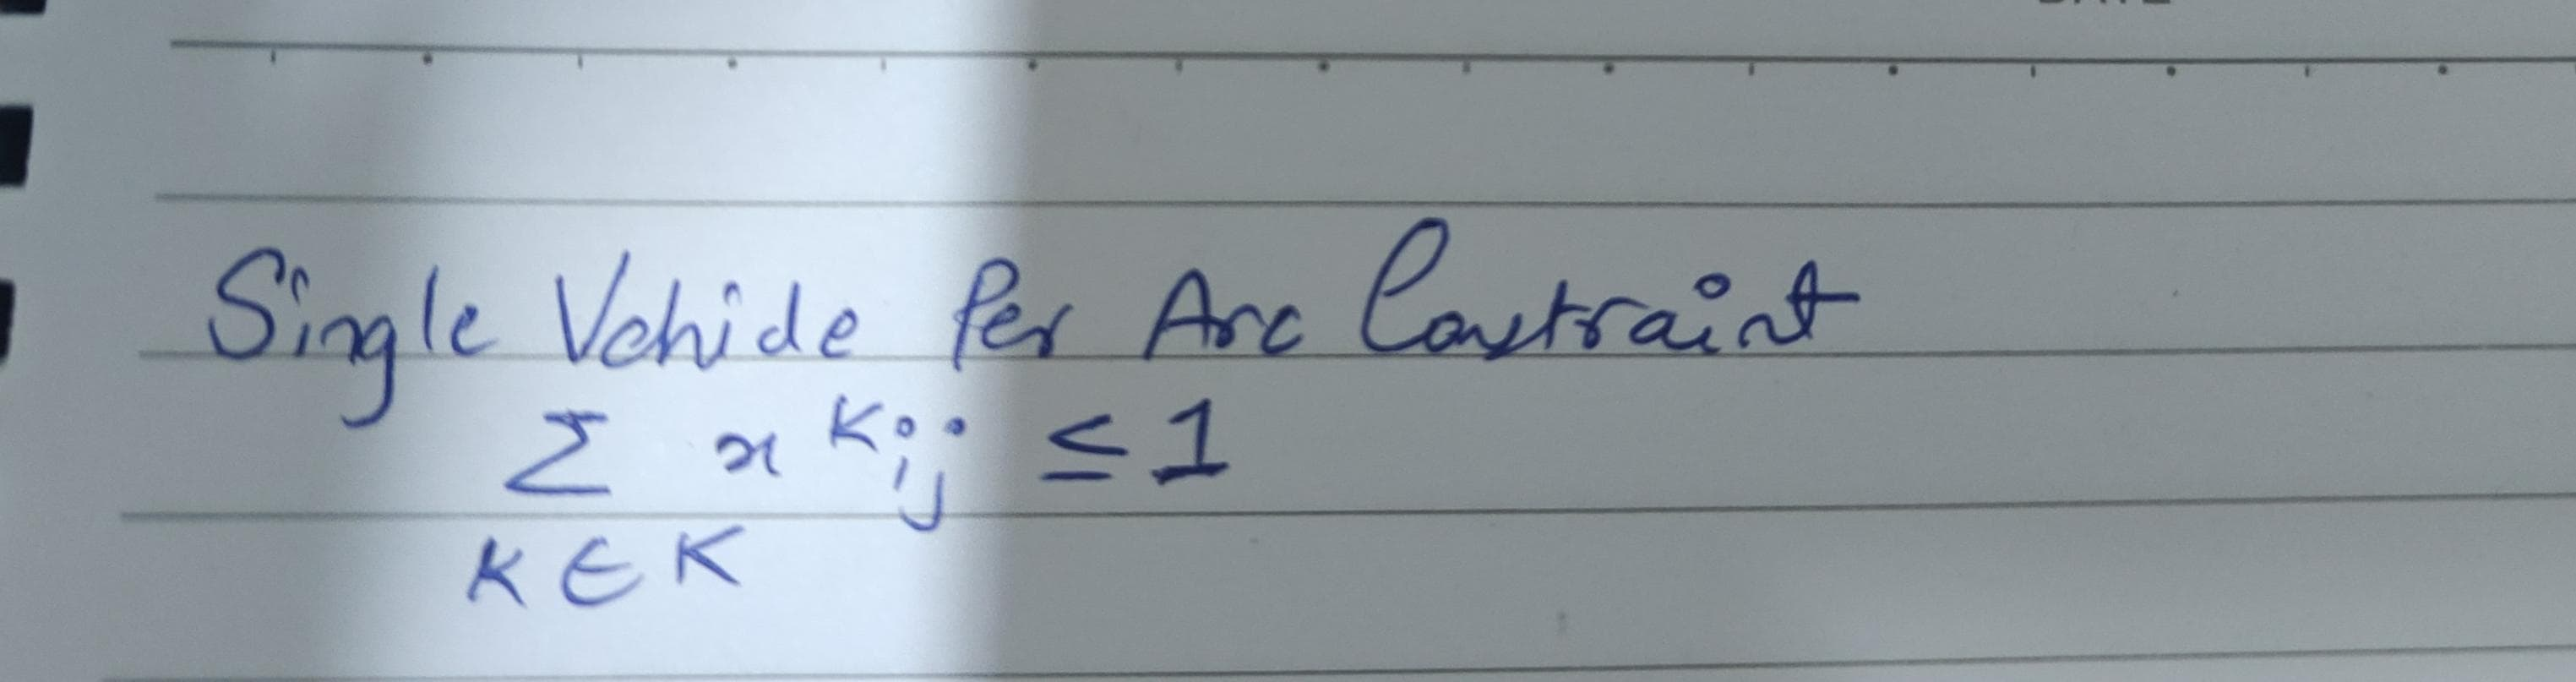 Single Vehicle Per Arc Constraint
∑ x^k_ij ≤ 1
K ∈ K